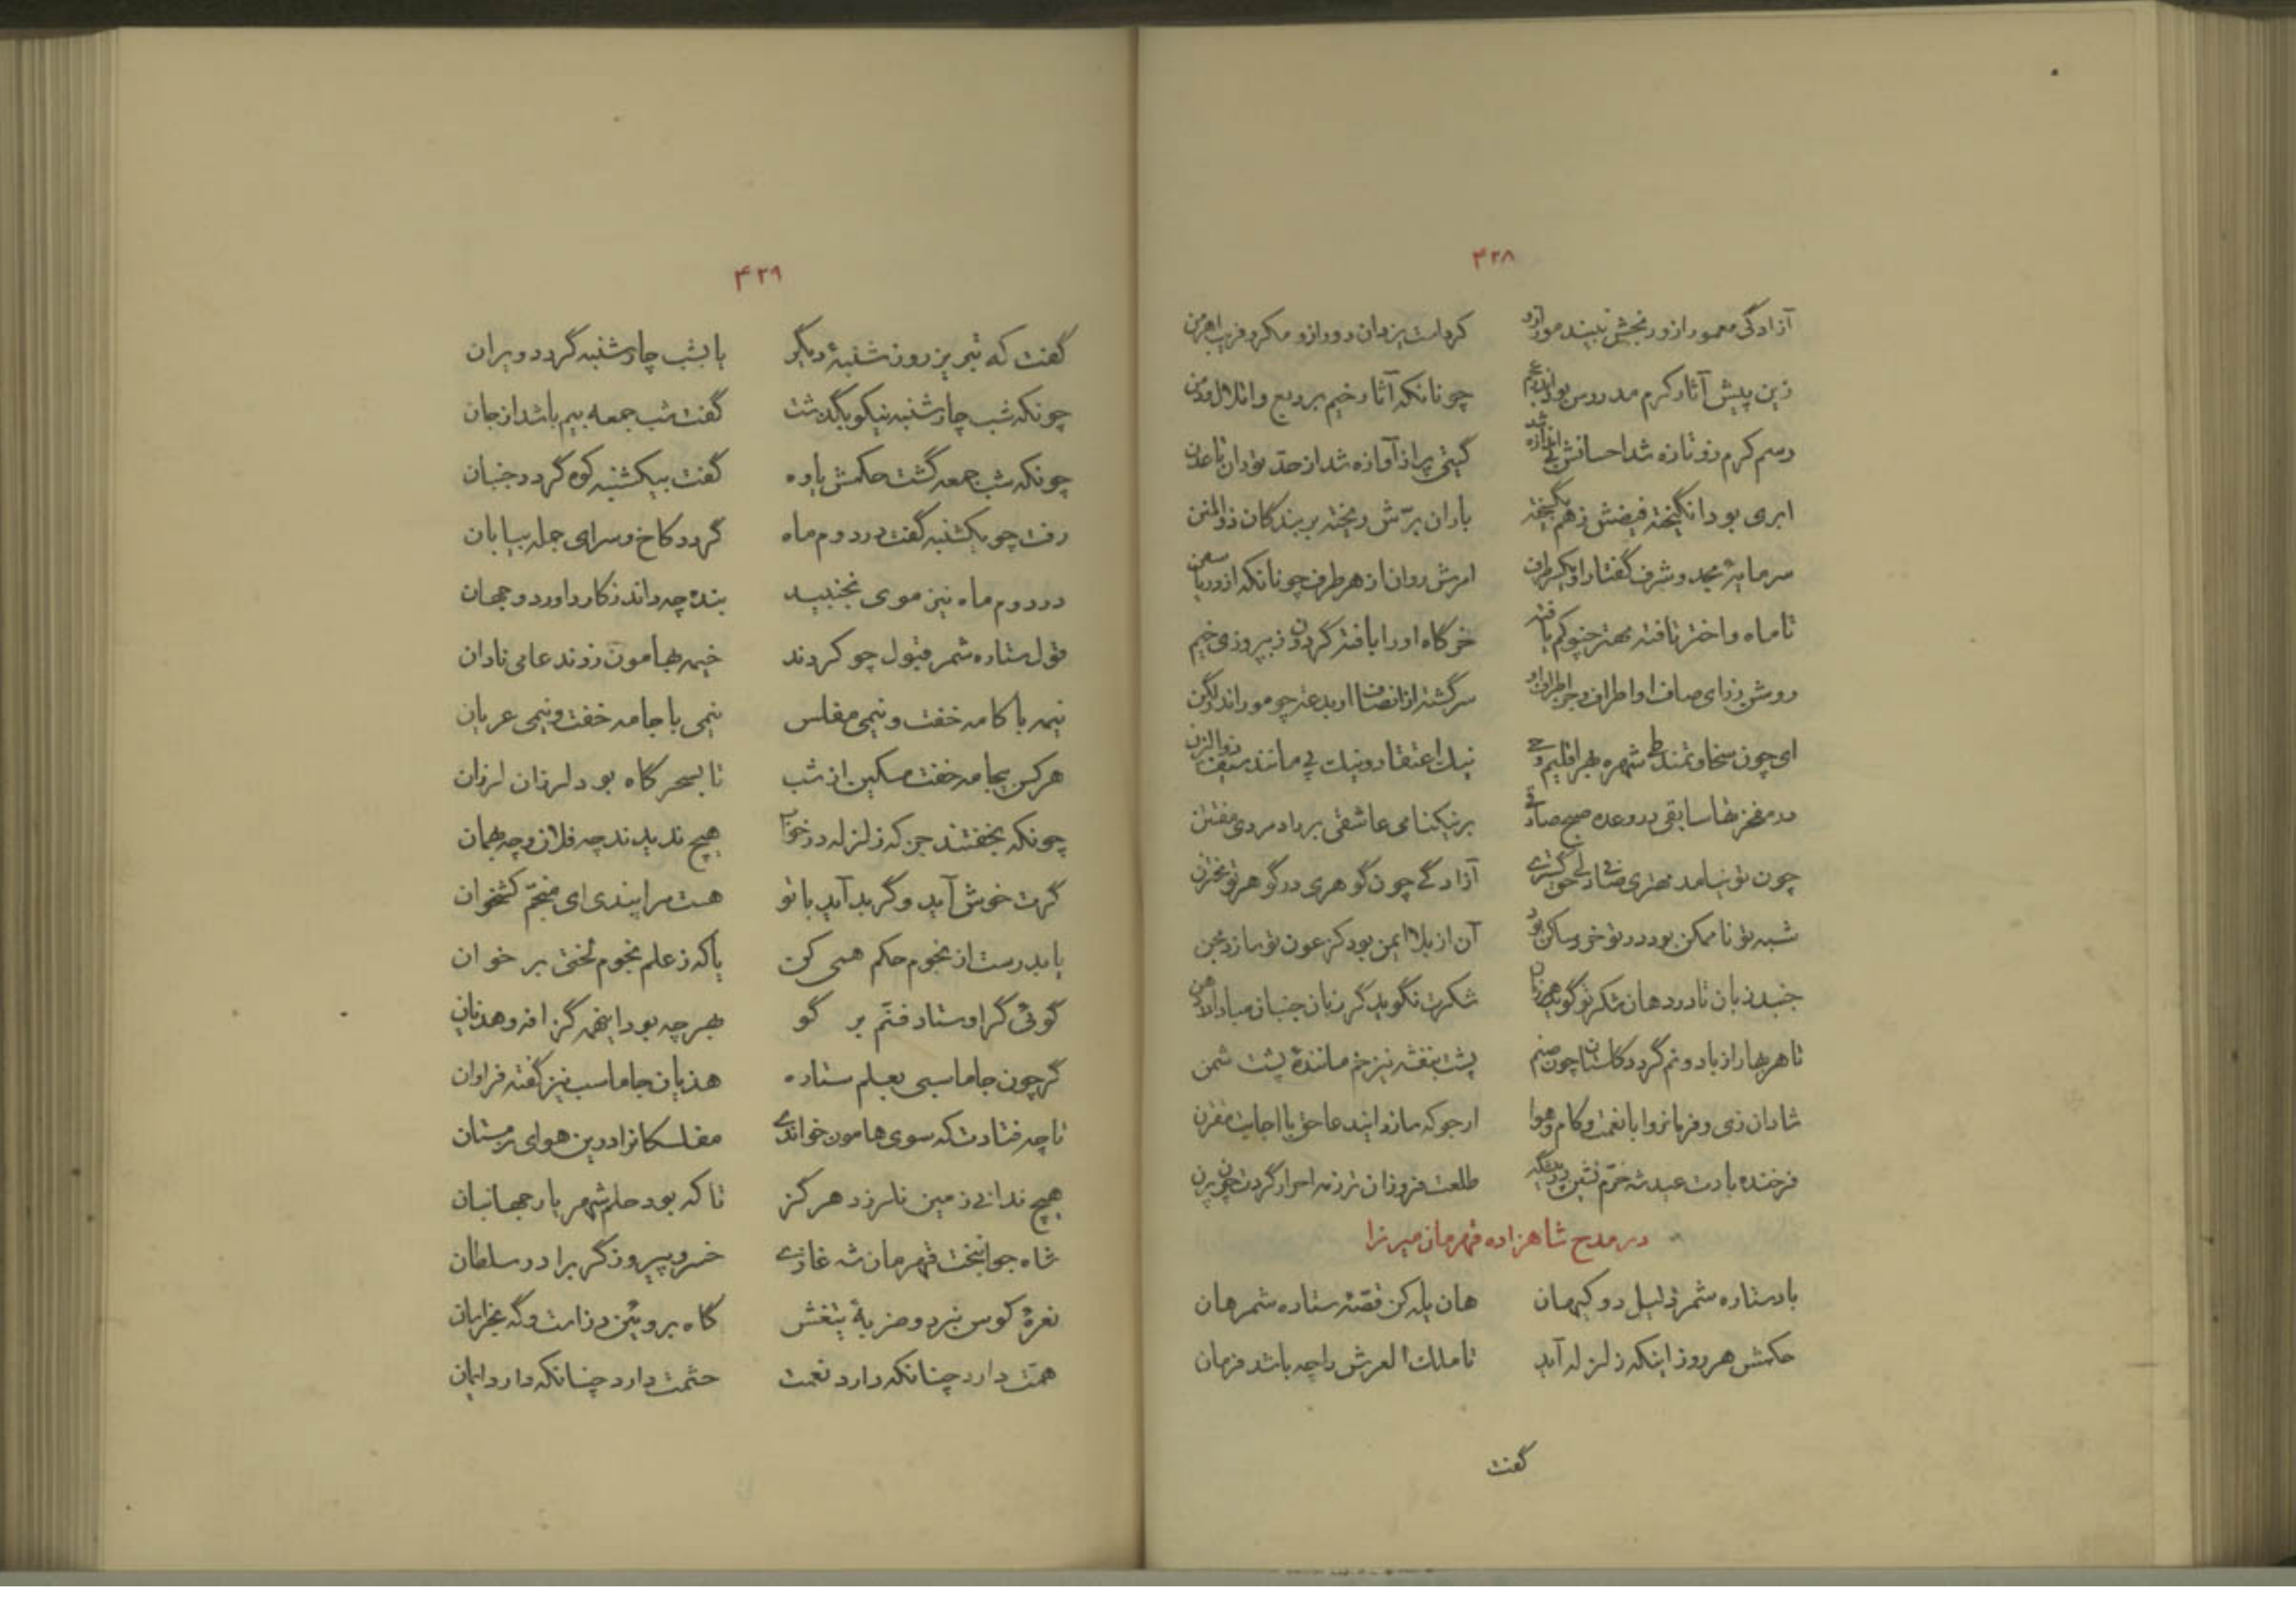 ۴۲۸
آزادگی معمور ازو رنجش نبیند مور ازو کرامت یزدان دور ازو مکر و فریب اهرمن
زین پیش آثار کرم مدروس بود اندر عجم چونانکه آثار خیم بر ربع و اطلال و دمن
رسم کرم زو تازه شد احسانش بی اندازه شد گیتی پر از آوازه شد از حدّ توران تا عدن
ابری بود انگیخته فیضش ز هم نگسیخته باران برّش ریخته بر بندگان ذوالمنن
سرمایهٔ مجد و شرف گفتار او یکسر طرف امرش روان از هر طرف چونانکه از دریا سفن
تا ماه و اختر تافته بهتر چنو کم یافته خرگاه او را بافته گردون ز پیروزی خیم
روشن ز رای صاف او اطراف و جز اطراف او سرگشته از انصاف او بدعت چو مور اندر لگن
ای چون سخاوتمند طی شهره بهر اقلیم و حی نیک اعتقاد و نیک پی مانند سیف ذوالیزن
در مفخرتها سابقی در وعده صبح صادقی بر نیکنامی عاشقی بر راد مردی مفتتن
چون تو نیامد مهتری صافی دلی حق گستری آزادگی چون گوهری در گوهر تو مختزن
شبه تو ناممکن بود در تو خرد ساکن بود آن از بلا ایمن بود کز عون تو سازد مجن
جنبد زبان تا در دهان شکر تو گوید هر زمان شکرت نگوید گر زبان جنبان مبادا در دهن
تا هر بهار از باد و نم گردد گلستان چون صنم پشت بنفشه نیز خم مانندهٔ پشت شمن
شادان زی و فرمانروا با نعمت و کام و هوا ارجو که سازد ایند عا حق با اجابت مقترن
فرخنده بادت عید شه خرّم نشین در پیشگه طلعت فروزان تر ز مه احرار گردت چون پرن
در مدح شاهزاده قهرمان میرزا
باد ستاره شمر ذلیل دو کیهان هان یله کن قصّهٔ ستاره شمر هان
حکمش هر روز اینکه زلزله آید تا ملک العرش را چه باشد فرمان
گفت
۴۲۹
گفت که تبریز روز شنبهٔ دیگر یا بشب چار شنبه گردد ویران
چونکه شب چار شنبه نیکو بگذشت گفت شب جمعه بیم باشد از جان
چونکه شب جمعه گشت حکمش یاوه گفت بیکشنبه کوه گردد جنبان
رفت چو یکشنبه گفت در دوم ماه گردد کاخ و سرای جمله بیابان
در دوم ماه نیز موی نجنبید بنده چه داند ز کار داور دو جهان
قول ستاره شمر قبول چو کردند خیمه بهامون زدند عامی نادان
نیمه با کامه خفت و نیمی مفلس نیمی با جامه خفت و نیمی عریان
هر کس بیجامه خفت مسکین از شب تا بسحر گاه بود لرزان لرزان
چونکه بخفتند جز که زلزله در خواب هیچ ندیدند چه فلان و چه بهمان
گرت خوش آید و گر بد آید با تو هست مرا پندی ای منجّم کشخوان
یا بدرست از نجوم حکم همی کن یا که ز علم نجوم لختی بر خوان
گوئی گر اوستاد فنّم بر گو بهر چه بود اینهمه گزافه و هذیان
گر چون جاماسبی بعلم ستاره هذیان جاماسب نیز گفته فراوان
تا چه فتادت که سوی هامون خواندی مفلسکانرا درین هوای زمستان
هیچ ندانی زمین نلرزد هرگز تا که بود حلم شهریار جهانبان
شاه جوانبخت قهرمان شه غازی خسرو پیروزگر برادر سلطان
نعرهٔ کوس نبرد و ضربهٔ تیغش گاه بروئین دز است و گه بخراسان
همّت دارد چنانکه دارد نعمت حشمت دارد چنانکه دارد ایمان